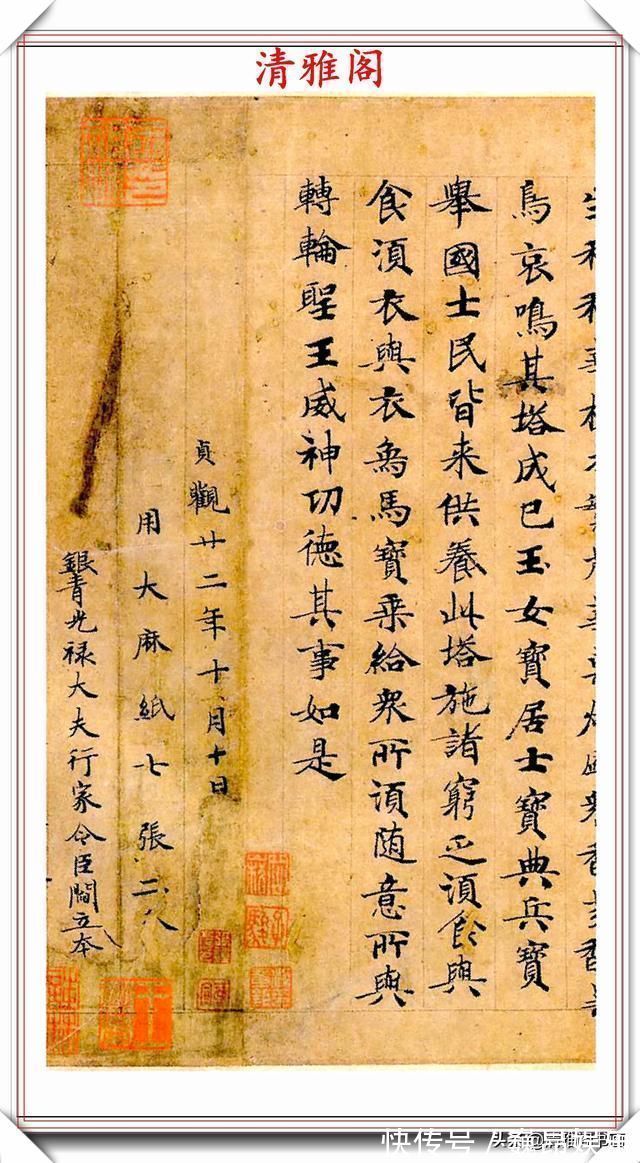 清雅阁
鳥哀鳴其塔成已玉女寶居士寶典兵寶
舉國士民皆来供養此塔施諸窮乏須食與
食須衣與衣象馬寶乘給衆所須随意所與
轉輪聖王威神功德其事如是
貞觀廿二年十月十日
用大麻紙七張二分
銀青光禄大夫行家令臣閻立本
快传号